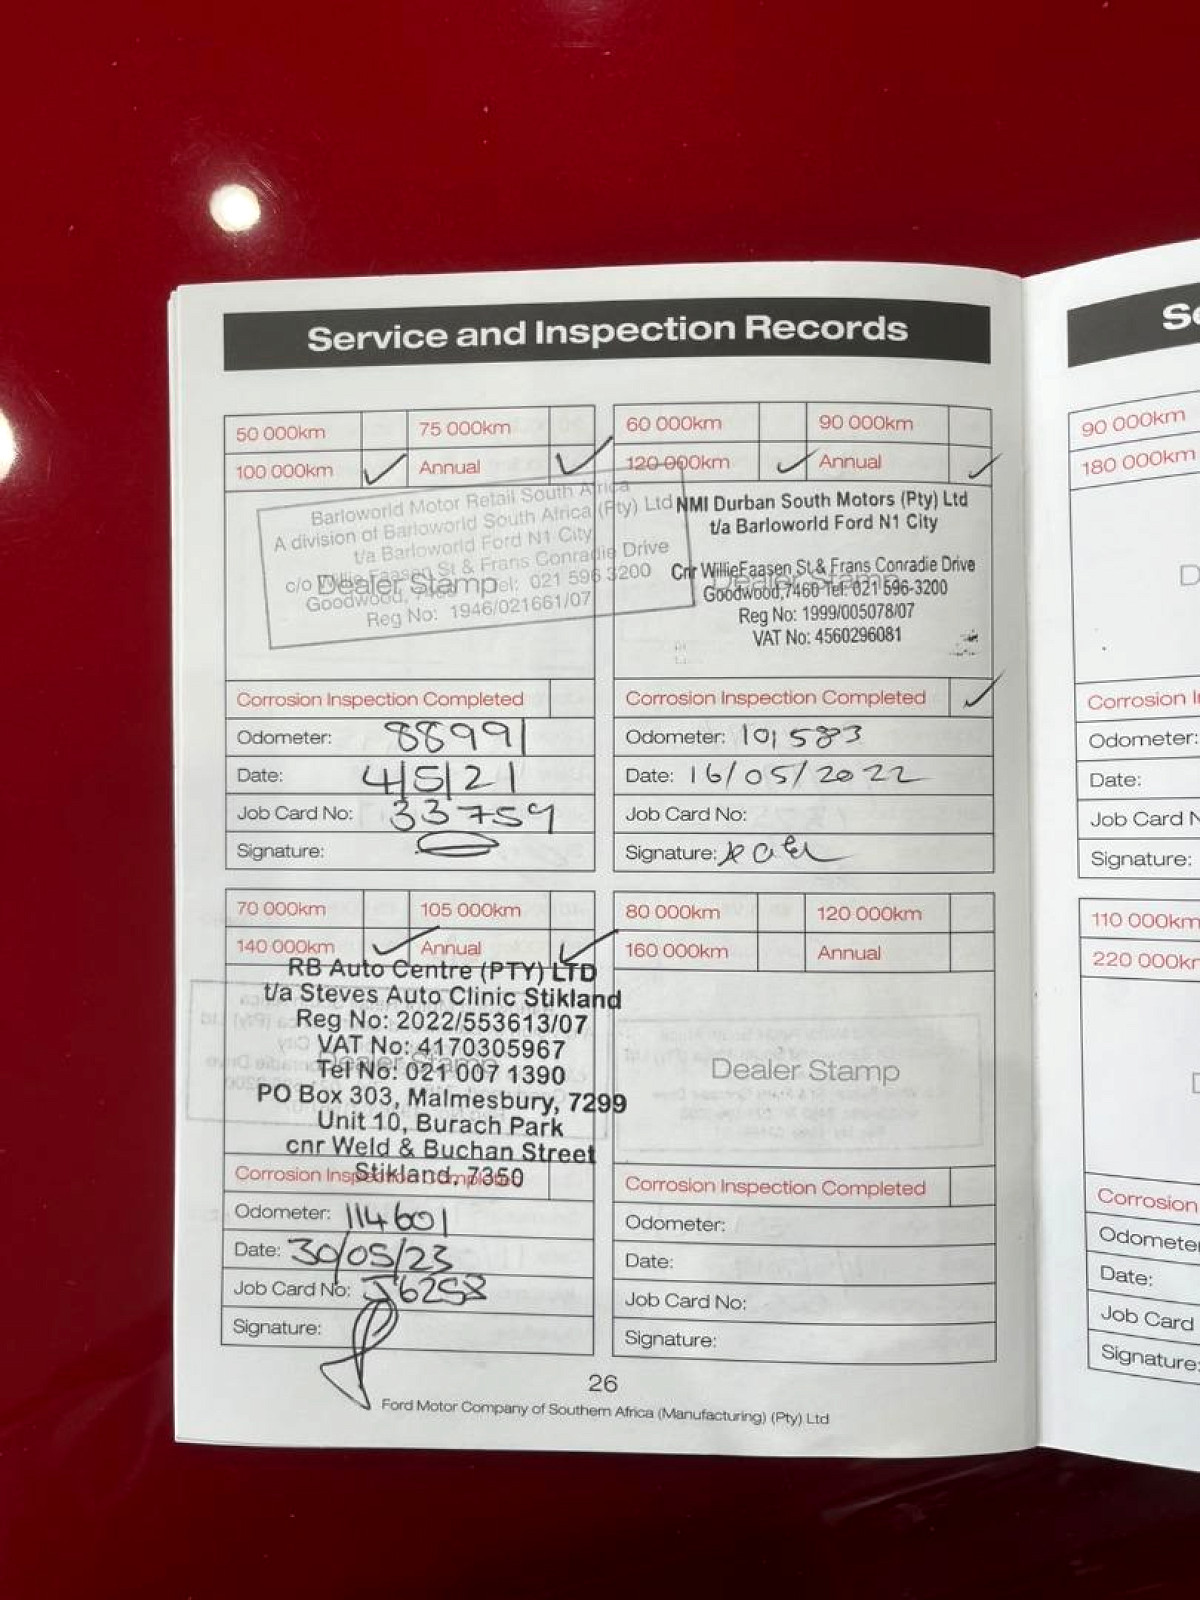 Service and Inspection Records
50 000km 75 000km
100 000km ✓ Annual ✓
Barloworld Motor Retail South Africa
A division of Barloworld South Africa (Pty) Ltd
t/a Barloworld Ford N1 City
c/o Willie Faasen St & Frans Conradie Drive
Dealer Stamp
Goodwood, 7460 Tel: 021 596 3200
Reg No: 1946/021661/07
Corrosion Inspection Completed
Odometer: 88991
Date: 4/5/21
Job Card No: 33759
Signature:
60 000km 90 000km
120 000km ✓ Annual ✓
NMI Durban South Motors (Pty) Ltd
t/a Barloworld Ford N1 City
Cnr WillieFaasen St & Frans Conradie Drive
Dealer Stamp
Goodwood,7460 Tel: 021 596-3200
Reg No: 1999/005078/07
VAT No: 4560296081
Corrosion Inspection Completed ✓
Odometer: 101583
Date: 16/05/2022
Job Card No:
Signature:
70 000km 105 000km
140 000km ✓ Annual ✓
RB Auto Centre (PTY) LTD
t/a Steves Auto Clinic Stikland
Reg No: 2022/553613/07
VAT No: 4170305967
Dealer Stamp
Tel No: 021 007 1390
PO Box 303, Malmesbury, 7299
Unit 10, Burach Park
cnr Weld & Buchan Street
Stikland, 7350
Corrosion Inspection Completed
Odometer: 114601
Date: 30/05/23
Job Card No: J6258
Signature:
80 000km 120 000km
160 000km Annual
Dealer Stamp
Corrosion Inspection Completed
Odometer:
Date:
Job Card No:
Signature:
26
Ford Motor Company of Southern Africa (Manufacturing) (Pty) Ltd
90 000km
180 000km
Corrosion
Odometer:
Date:
Job Card
Signature:
110 000km
220 000km
Corrosion
Odometer
Date:
Job Card
Signature: